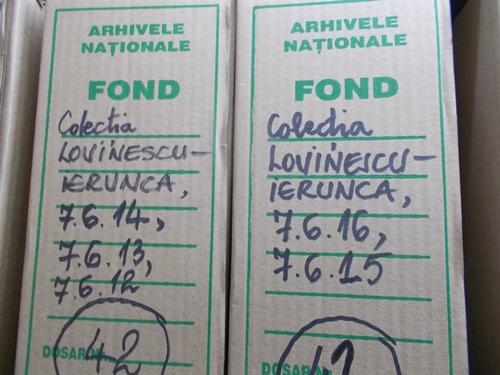 ARHIVELE
NAȚIONALE
FOND
Colectia
LOVINESCU-
IERUNCA,
7.6.14,
7.6.13,
7.6.12
DOSAR N...
42
ARHIVELE
NAȚIONALE
FOND
Colectia
LOVINESCU-
IERUNCA,
7.6.16,
7.6.15
DOSAR